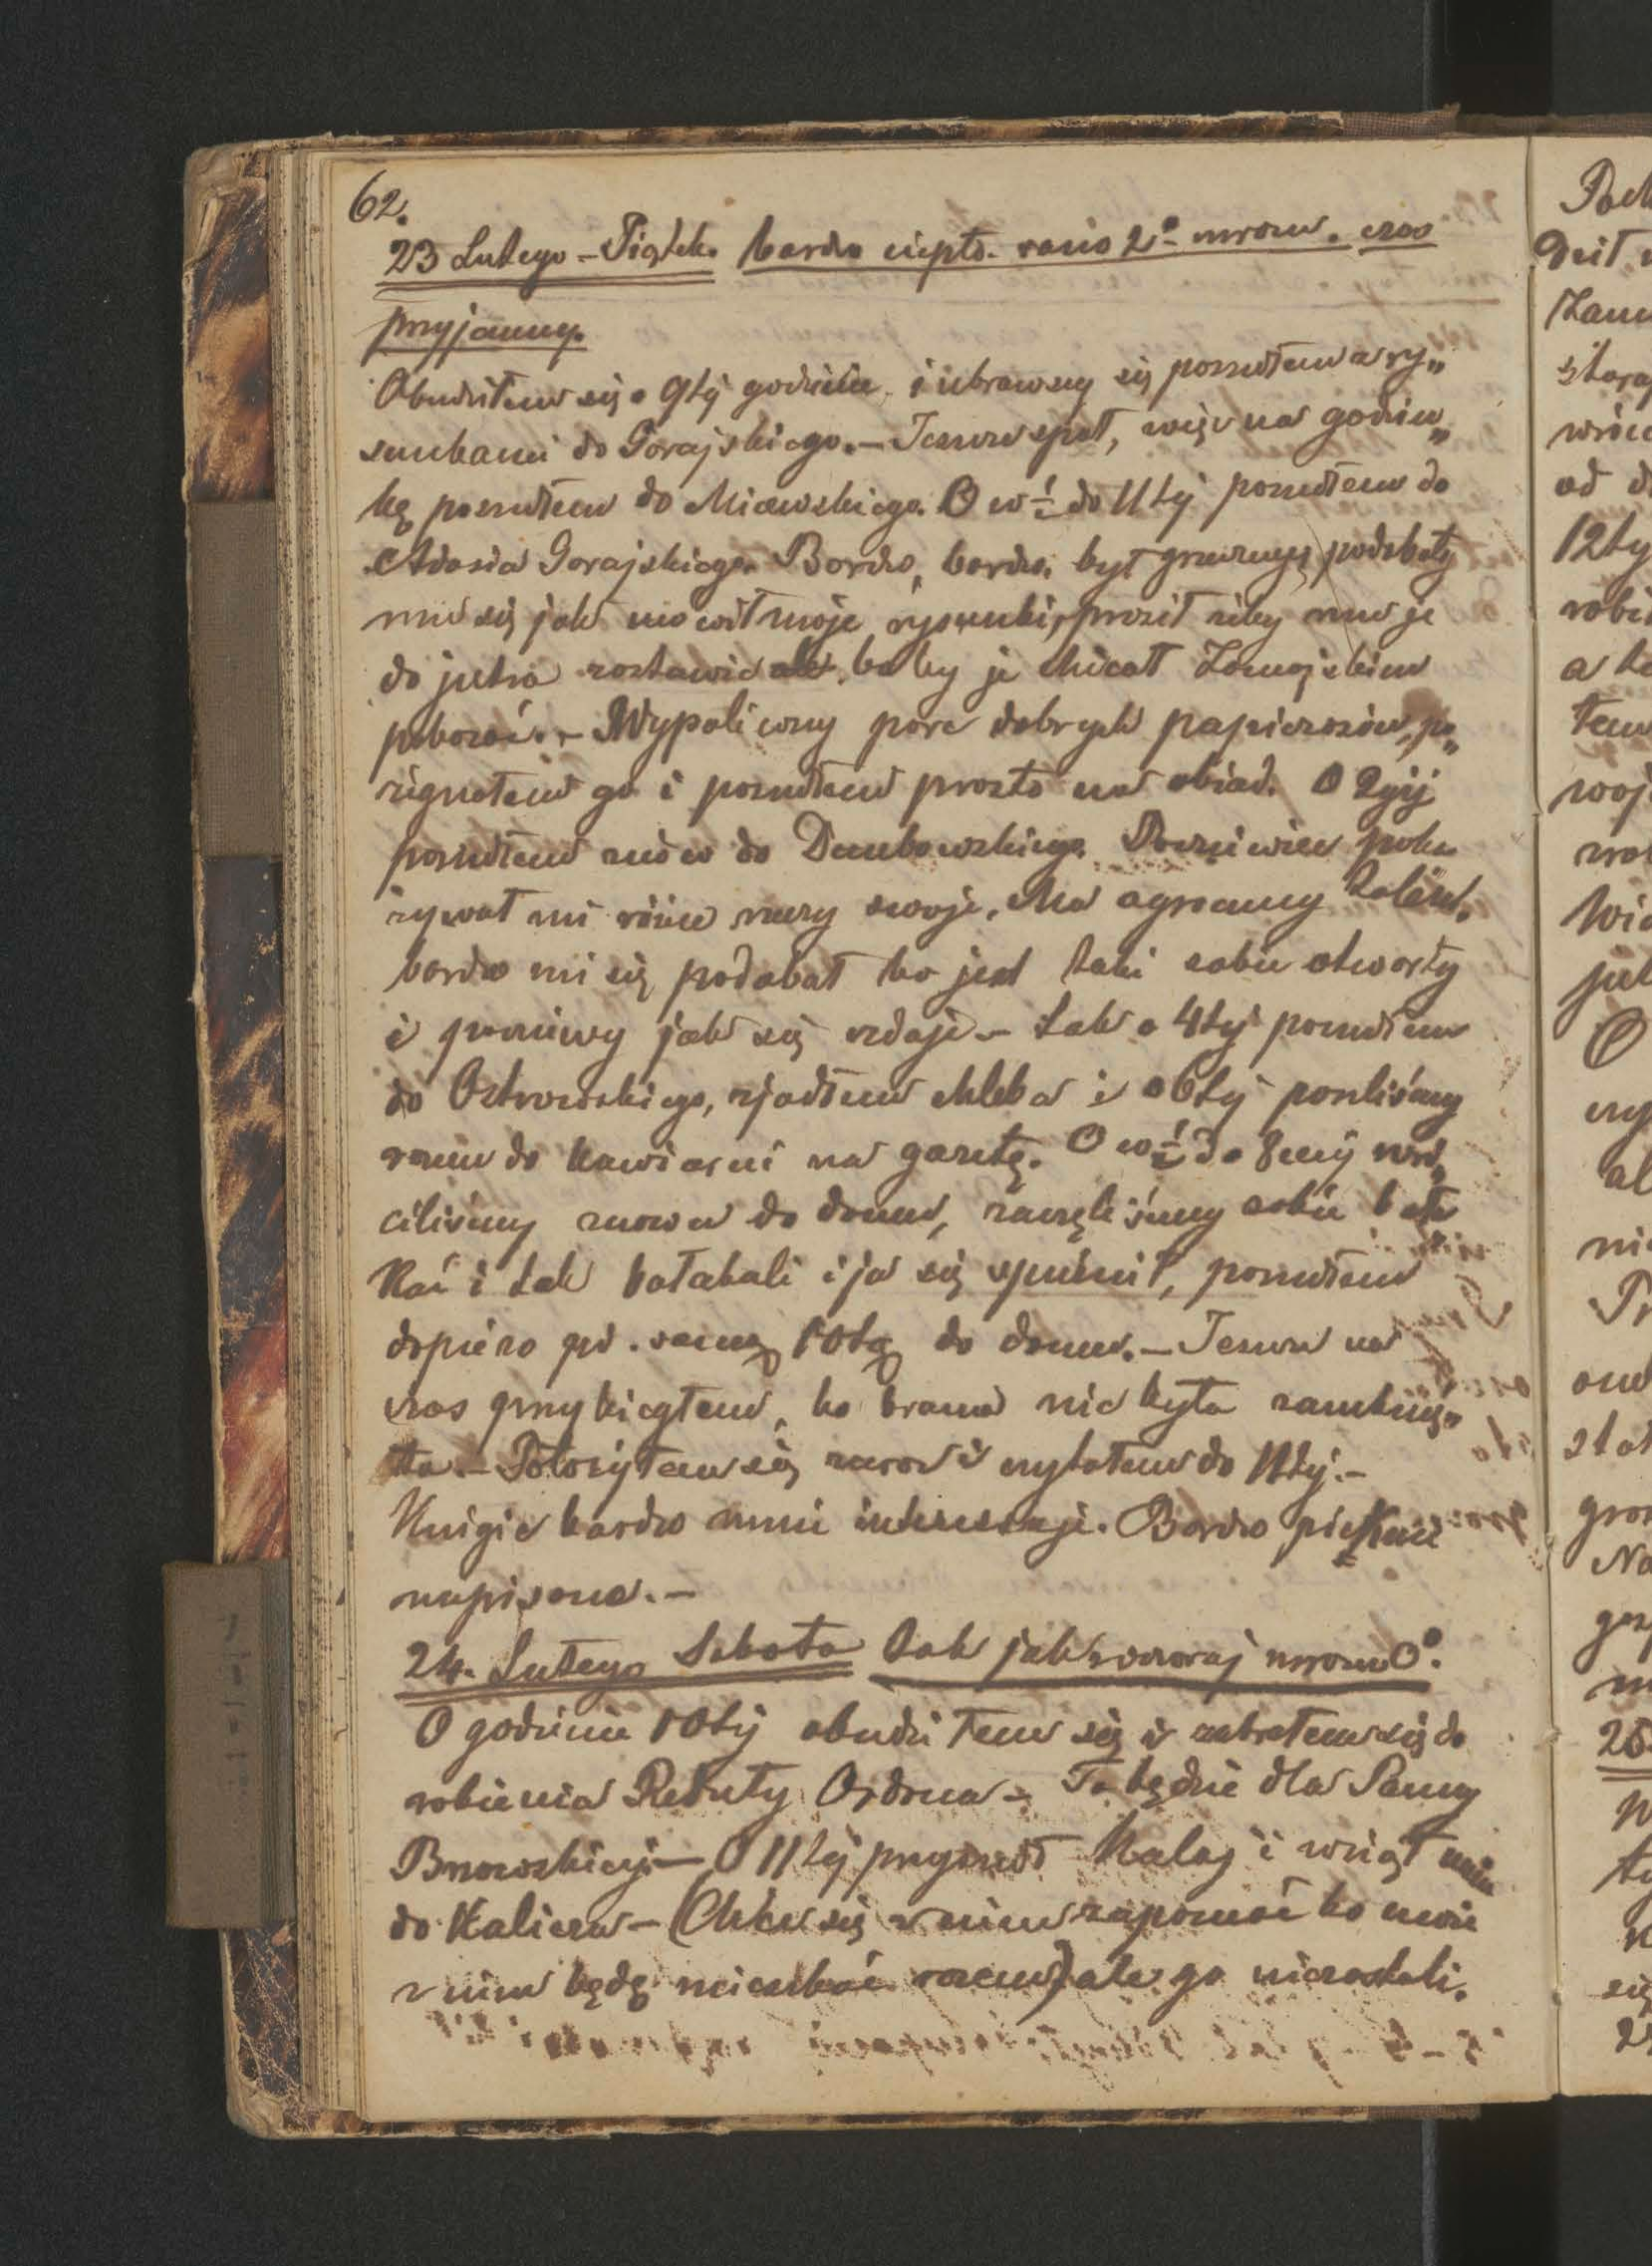 62.
23 Lutego – Piątek. bardzo ciepło. rano 2° mrozu. czas
przyjemny.
Obudziłem się o 9tej godzinie i ubrawszy się poszedłem z ry„
sunkami do Gorajskiego. – Jeszcze spał, więc na godzin„
kę poszedłem do Miczewskiego. O w ½ do 11tej poszedłem do
Adasia Gorajskiego. Bardzo, bardzo był grzeczny, podobały
mu się jak mówił moje rysunki, prosił żeby mu je
do jutra zostawić bo by je chciał Zamojskim
pokazać. – Wypaliwszy parę dobrych papierosów, po„
żegnałem go i poszedłem prosto na obiad. O 2giej
poszedłem znów do Dembowskiego. Poczciwiec poka
zywał mi różne rzeczy swoje. Ma ogromny talent.
bardzo mi się podobał bo jest taki sobie otwarty
i poczciwy jak się zdaje – Tak o 4tej poszedłem
do Ostrowskiego, zjadłem chleba i o 6tej poszliśmy
razem do kawiarni na gazetę. O w ½ do 8mej wró„
ciliśmy znowu do domu, zaczęliśmy sobie bała
kać i tak bałakali i ja się spóźnił, poszedłem
dopiero pod samą 10tą do domu. – Jeszcze na
czas przybiegłem, bo brama nie była zamknię„
ta. – Położyłem się zaraz i czytałem do 11tej. –
Książka bardzo mnie interesuje. Bardzo pięknie
napisana. –
24. Lutego Sobota tak jak wczoraj mrozu 0°.
O godzinie 10tej obudziłem się i zabrałem się do
robienia Reduty Ordona – To będzie dla Panny
Brzozowskiej – O 11tej przyszedł Kalaj i wziął mnie
do Kalicza – (Chce się z nim zapoznać bo może
z nim będę mieszkać razem) ale go niezastali.